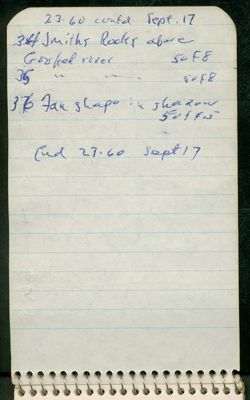 23.60 contd Sept. 17
34 Smiths Rocks above
Crooked river 50 F8
35 " " 50 F8
36 Fan shape in shadow
50 F4.5
End 23.60 Sept 17